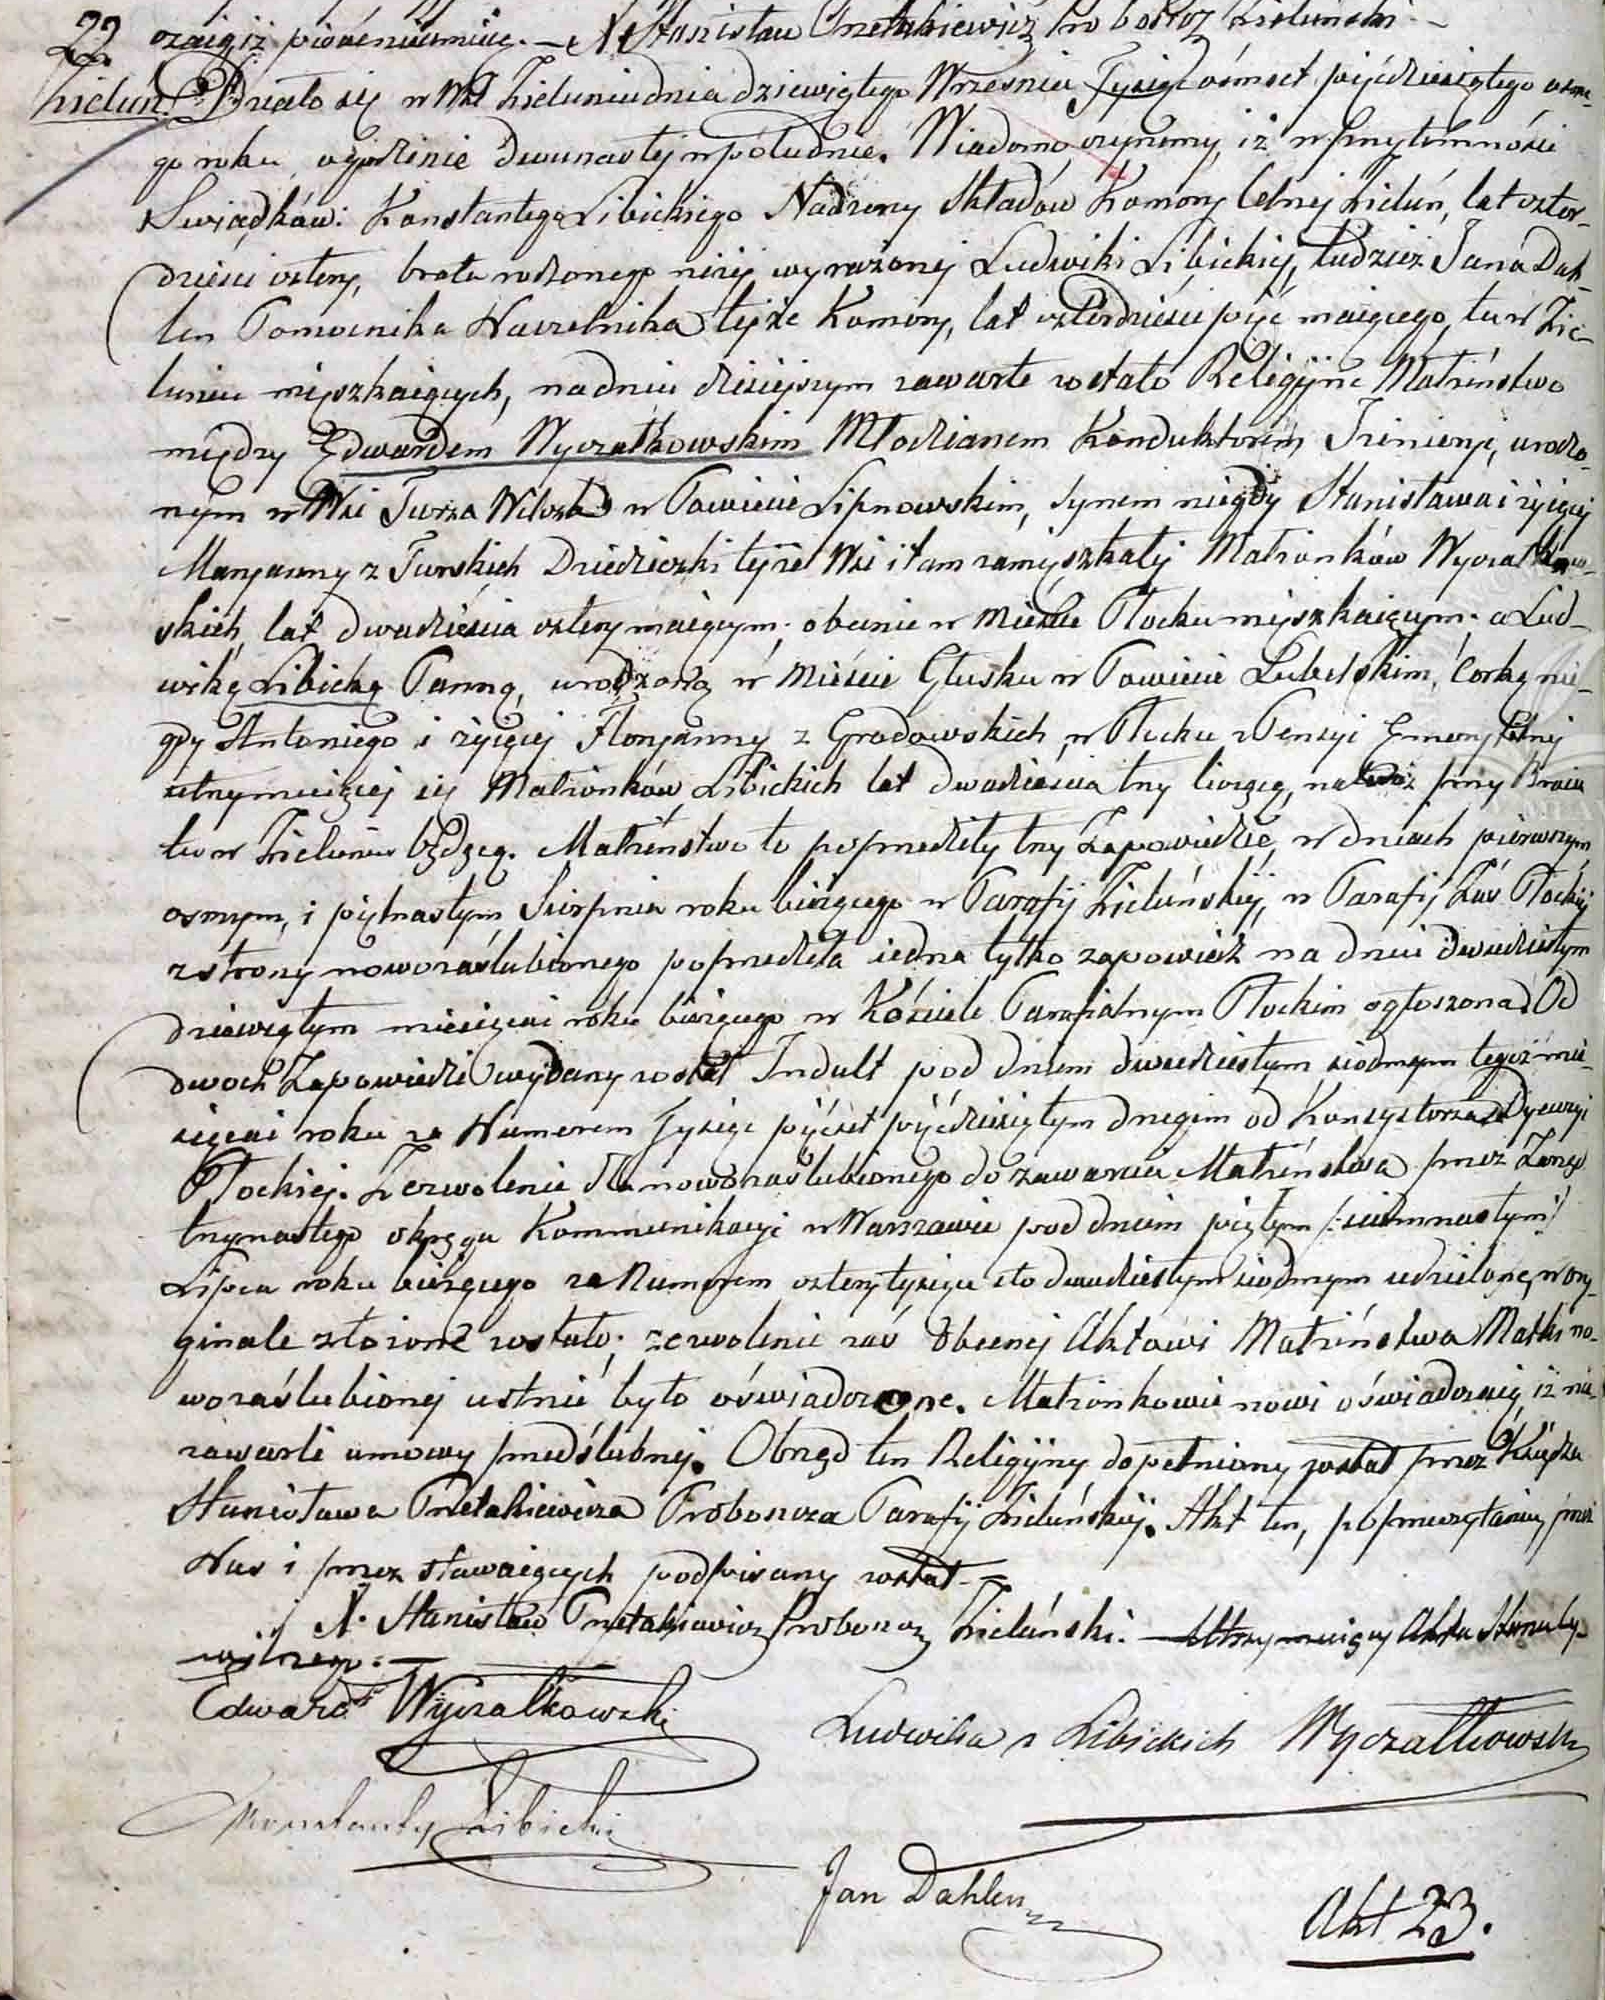 22. czaią iż pisać nieumieią. — X Stanisław Przetakiewicz Proboszcz Zieluński —
Zieluń. Działo się w Wsi Zieluniu dnia dziewiątego Września Tysiąc ośmset pięćdziesiątego osme-
go roku, o godzinie dwunastej w południe. Wiadomo czynemy, iż w przytomności
Swiadków: Konstantego Libickiego Nadzorcy Składów Komory Celnej Zieluń, lat czter-
dzieści cztery, brata rodzonego niżej wyrażonej Ludwiki Libickiej, tudzież Jana Dah-
len Pomocnika Naczelnika tejże Komory, lat czterdzieści pięć maiącego, tu w Zie-
luniu mięszkaiących, na dniu dzisiejszym zawarte zostało Religijne Małżeństwo
między Edwardem Wyczałkowskim Młodzianem Konduktorem Inżenieryi, urodzo-
nym w Wsi Turza Wilcza w Powiecie Lipnowskim, synem niegdy Stanisława i żyjącej
Maryanny z Turskich Dziedziczki tejże Wsi i tam zamięszkałej Małżonków Wyczałkow-
skich, lat dwadzieścia cztery maiącym; obecnie w Mieście Płocku mięszkaiącym; a Lud-
wiką Libicką Panną, urodzoną w Mieście Głusku w Powiecie Lubelskim, Corką nie-
gdy Antoniego i żyjącej Floryanny z Grodowskich, w Płocku z Pensyi Emerytalnej
utrzymuiącej się Małżonków Libickich lat dwadzieścia trzy liczącą, na teraz przy Bracie
tu w Zieluniu będącą. Małżeństwo to poprzedziły trzy Zapowiedzie, w dniach pierwszym
osmym, i piętnastym Sierpnia roku bieżącego w Parafij Zieluńskiej, w Parafij Zaś Płockiej
z strony nowozaślubionego poprzedziła iedna tylko zapowiedź na dniu dwudziestym
dziewiątym miesiąca i roku bieżącego w Kościele Parafialnym Płockim ogłoszona. Od
dwoch Zapowiedzi wydany został Indult pod dniem dwudziestym siodmym tegoż mie-
siąca i roku za Numerem Tysiąc pięćset pięćdziesiątym drugim od Konsystorza Dyecezyi
Płockiej. Zezwolenie dla nowozaślubionego do zawarcia Małżeństwa przez Zarząd
trzynastego okręgu Kommunikacyi w Warszawie pod dniem piątym /: siedmnastym :/
Lipca roku bieżącego za Numerem cztery tysiące sto dwudziestym siodmym udzielone, w ory-
ginale złożone zostało; zezwolenie zaś obecnej Aktowi Małżeństwa Matki no-
wozaślubionej ustnie było oświadczone. Małżonkowie nowi oświadczaią, iż nie
zawarli umowy przedślubnej. Obrzęd ten Religijny dopełniony został przez Księdza
Stanisława Przetakiewicza Proboszcza Parafij Zieluńskiej. Akt ten, po przeczytaniu, przez
Nas i przez stawaiących podpisany został. —
X. Stanisław Przetakiewicz Proboszcz Zieluński. — Utrzymuiący Akta Stanu Cy-
wilnego. —
Edward Wyczałkowski
Ludwika z Libickich Wyczałkowska
Konstanty Libicki
Jan Dahlen
Akt 23.